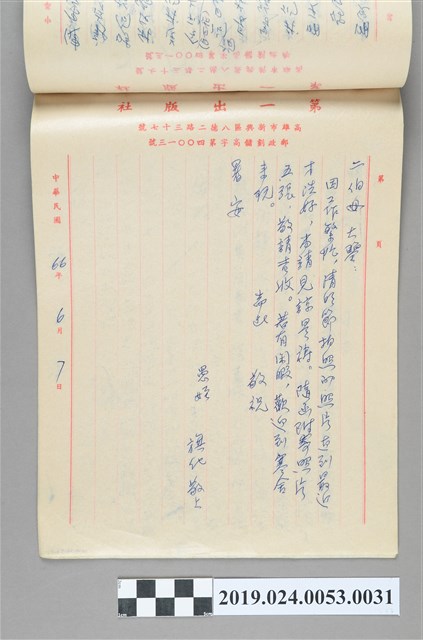 第一出版社
高雄市新興區八德二路三十七號
郵政劃儲高字第四〇〇一三號
第 頁
二伯母大鑒:
因工作繁忙,清明節拍照的照片直到最近
才洗好,尚請見諒是禱。隨函附寄照片
五張,敬請查收。若有閑暇,歡迎到寒舍
來玩。
耑此 敬祝
暑安
愚姪 旗化敬上
中華民國 66 年 6 月 7 日
2019.024.0053.0031